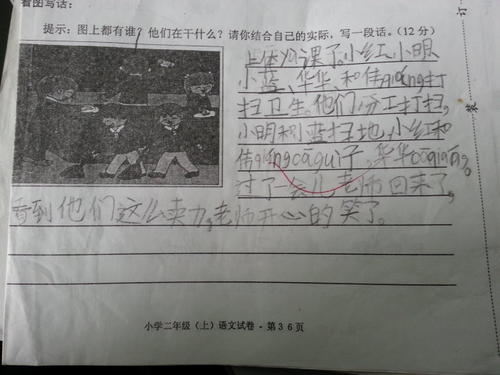 看图写话:
提示:图上都有谁?他们在干什么?请你结合自己的实际,写一段话。(12分)
上体育课了。小红、小明、
小蓝、华华、和伟qiáng打
扫卫生。他们分工打扫,
小明和小蓝扫地,小红和
伟qiángcāguì子,华华cāqiáng。
过了一会儿,老师回来了,
看到他们这么卖力,老师开心的笑了。
小学二年级(上)语文试卷-第36页
订
装